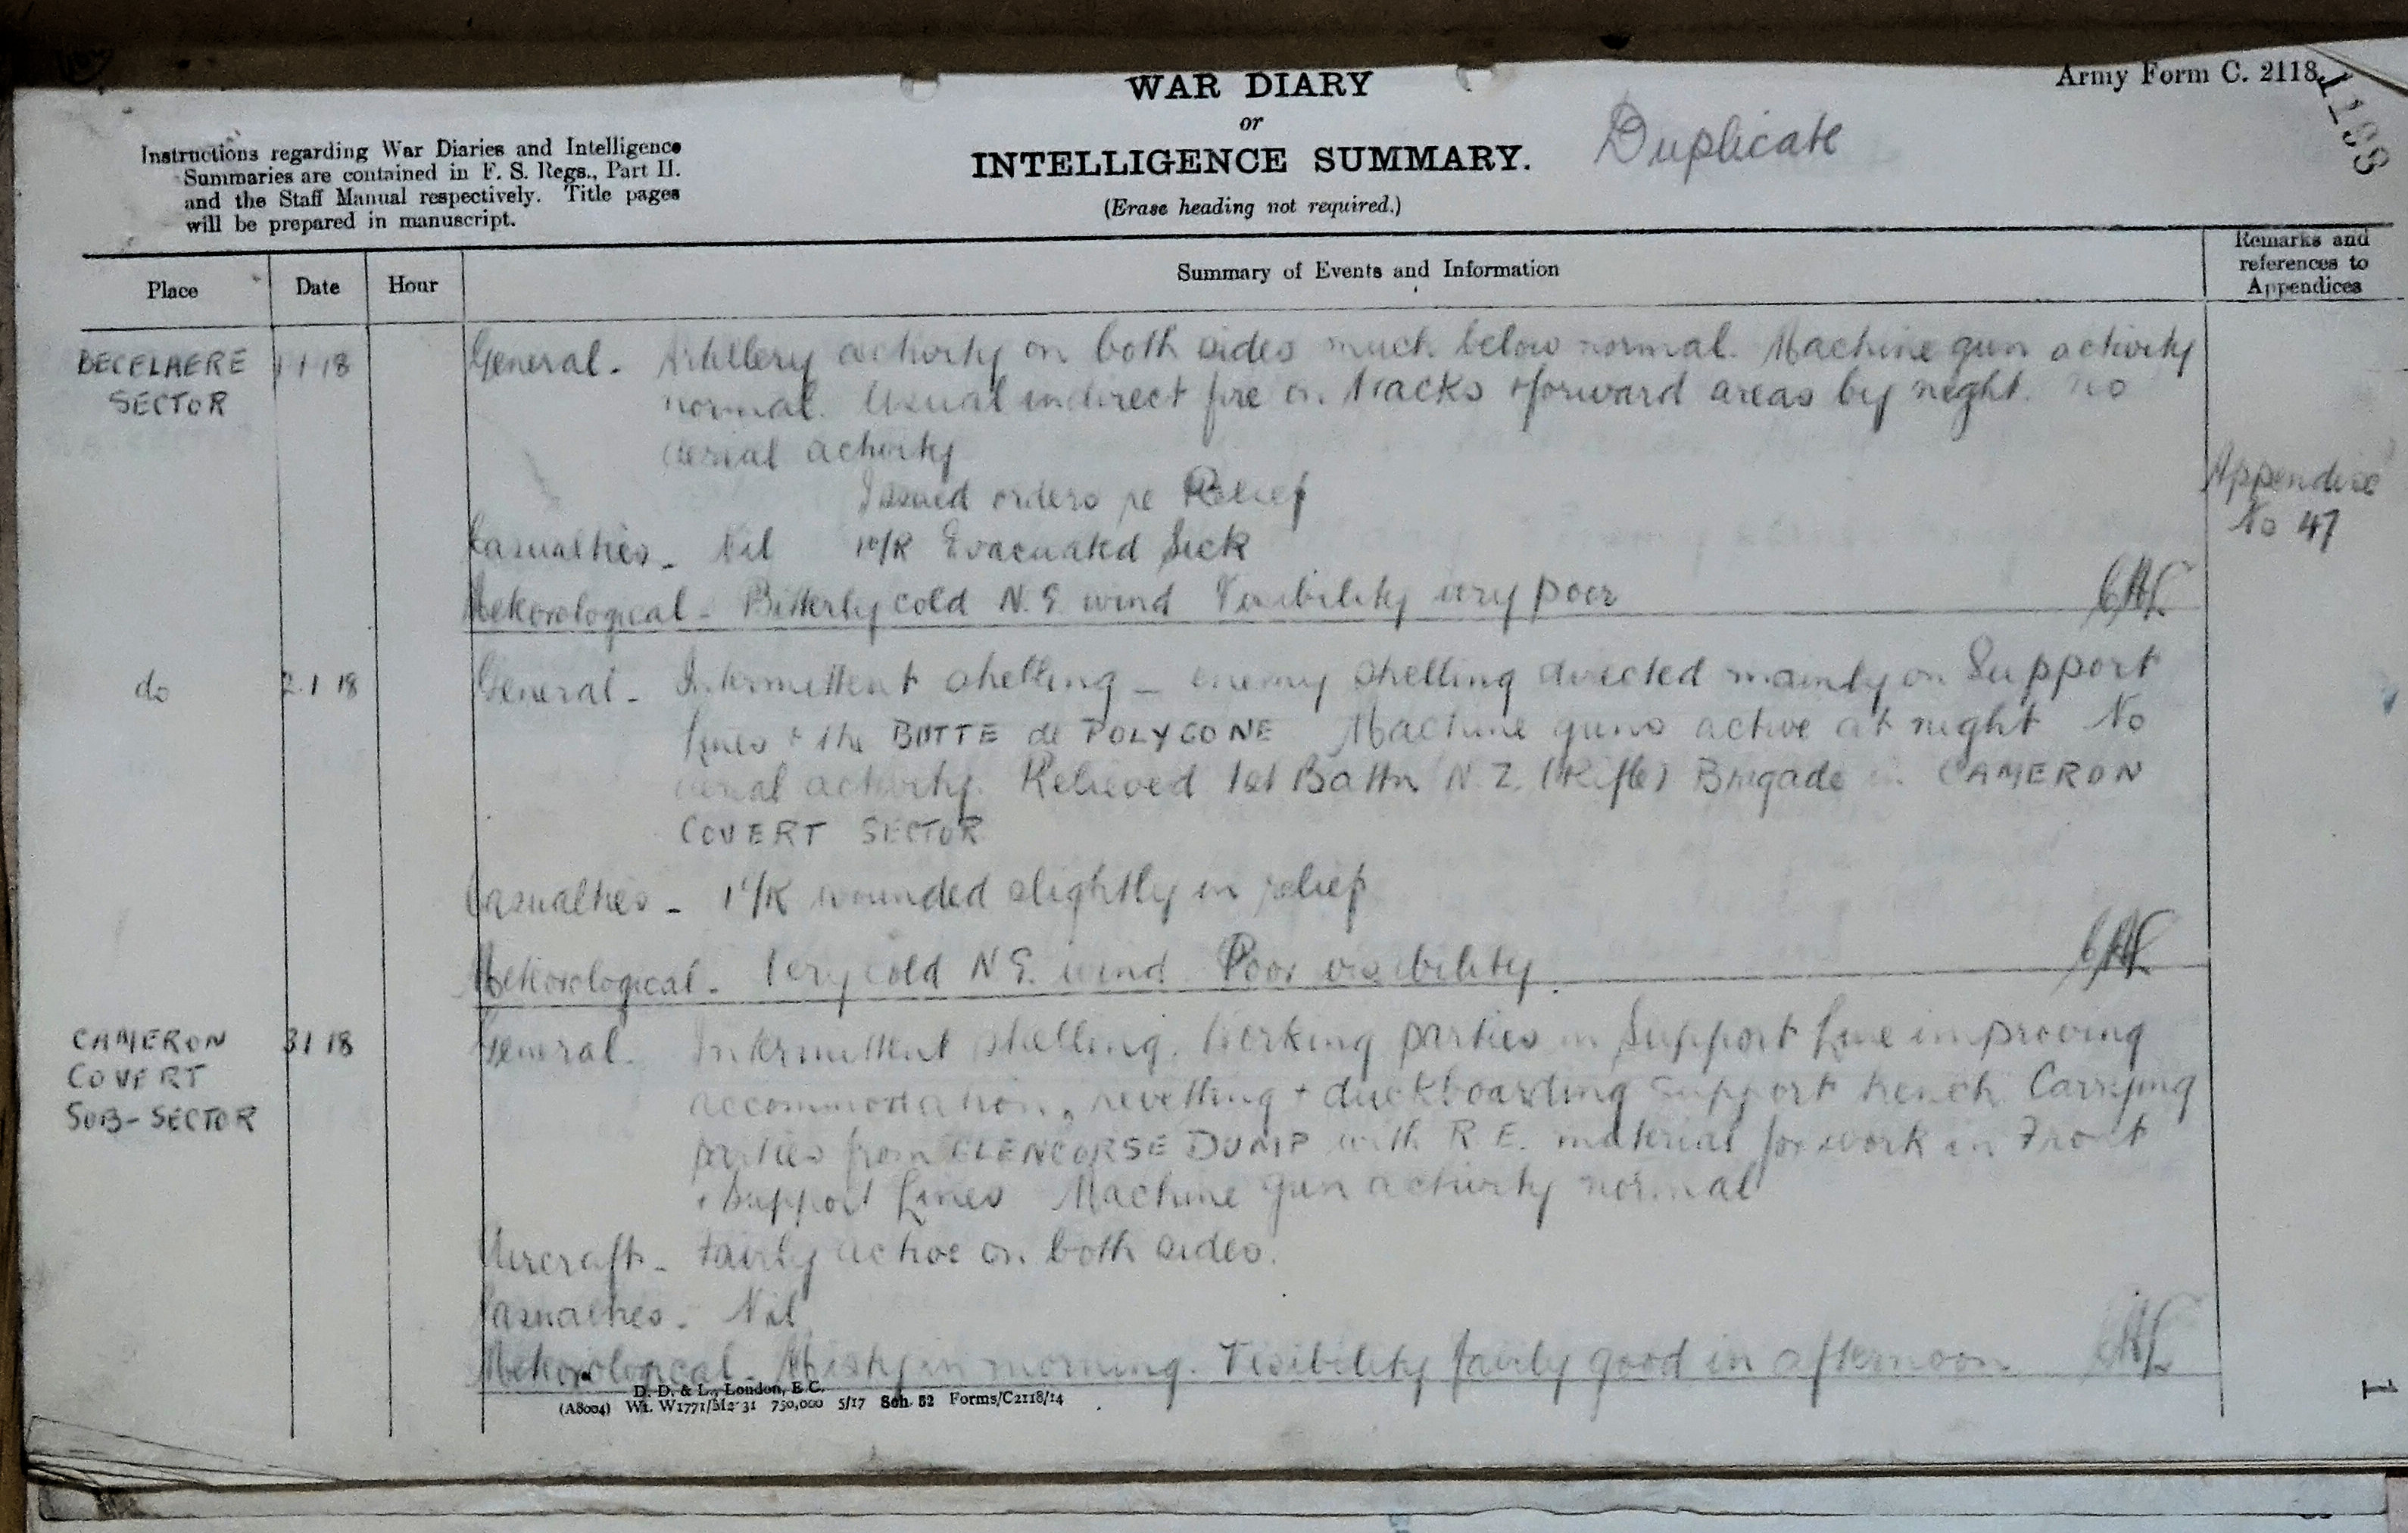 WAR DIARY
or
INTELLIGENCE SUMMARY.
(Erase heading not required.)
Duplicate
Army Form C. 2118.
Instructions regarding War Diaries and Intelligence
Summaries are contained in F. S. Regs., Part II.
and the Staff Manual respectively. Title pages
will be prepared in manuscript.
Place Date Hour Summary of Events and Information Remarks and references to Appendices
BECELAERE 1 1 18 General - Artillery activity on both sides much below normal. Machine gun activity
SECTOR normal. Usual indirect fire on tracks + forward areas by night. No
aerial activity
Issued orders re Relief Appendix
No 47
Casualties - Nil 1 O/R Evacuated Sick
Meteorological - Bitterly cold N.E. wind Visibility very poor
do 2.1 18 General - Intermittent shelling - enemy shelling directed mainly on Support
Lines + the BUTTE de POLYGONE Machine guns active at night No
aerial activity. Relieved 1st Battn N.Z. (Rifle) Brigade in CAMERON
COVERT SECTOR
Casualties - 1 O/R wounded slightly in relief
Meteorological - Very cold N.E. wind. Poor visibility.
CAMERON 3 1 18 General. Intermittent shelling. Working parties in Support Line improving
COVERT accommodation, revetting + duckboarding support trench. Carrying
SUB-SECTOR parties from GLENCORSE DUMP with R.E. material for work in Front
+ Support Lines Machine gun activity normal
Aircraft - Fairly active on both sides.
Casualties - Nil
Meteorological - Misty in morning. Visibility fairly good in afternoon
D. D. & L., London, E.C.
(A8004) Wt. W1771/M2 31 750,000 5/17 Sch. 52 Forms/C2118/14
1